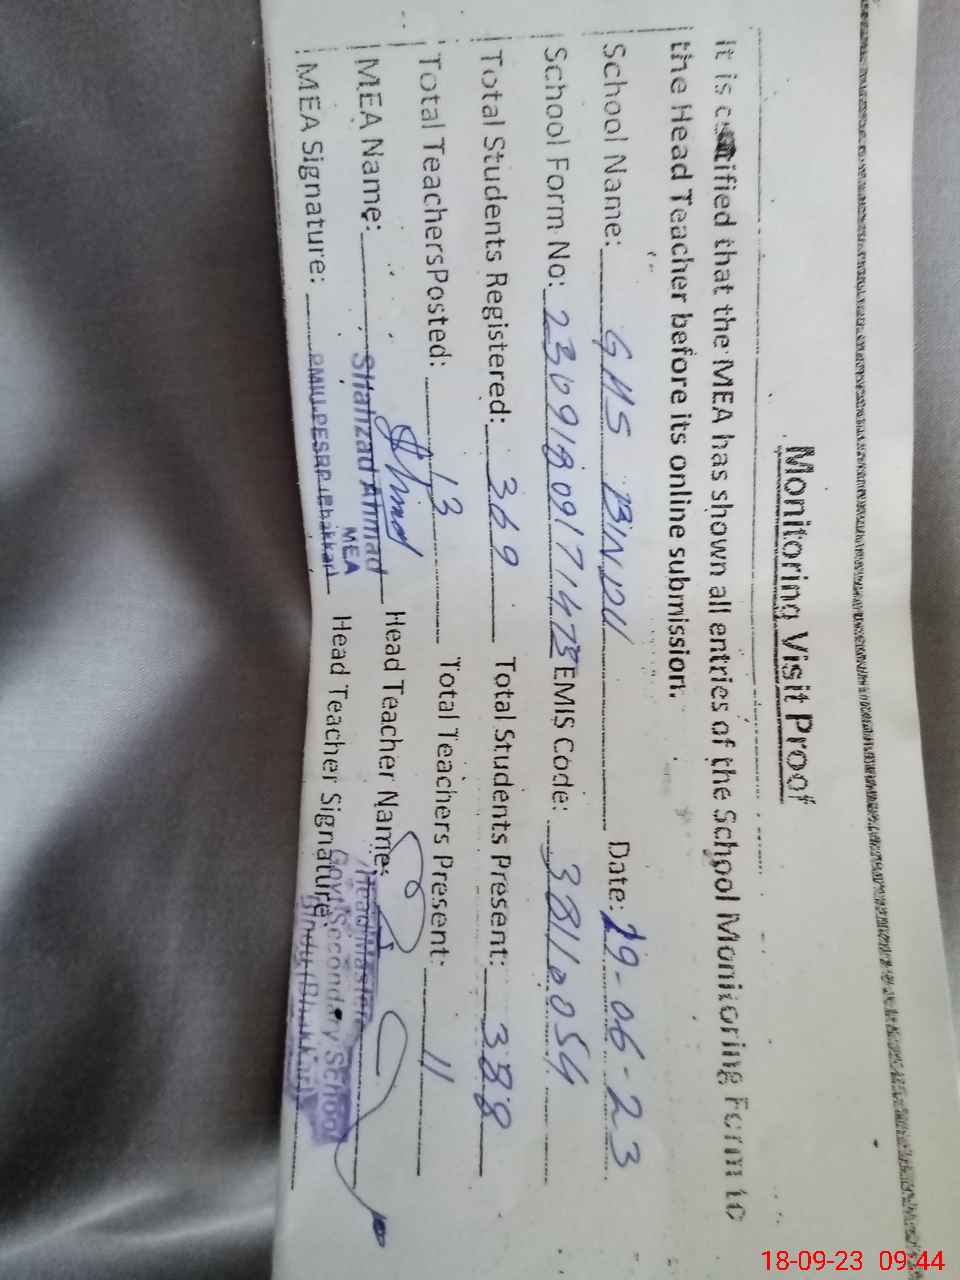 Monitoring Visit Proof
It is certified that the MEA has shown all entries of the School Monitoring Form to
the Head Teacher before its online submission.
School Name: GHS BINDU Date: 19-06-23
School Form No: EMIS Code: 38110054
Total Students Registered: 369 Total Students Present: 388
Total TeachersPosted: 13 Total Teachers Present: 11
MEA Name: Shahzad Ahmad Head Teacher Name:
MEA
MEA Signature: PMIU-PESRP (Bhakkar) Head Teacher Signature:
Head Master
Govt Secondary School
Bindu (Bhakkar)
18-09-23 09:44